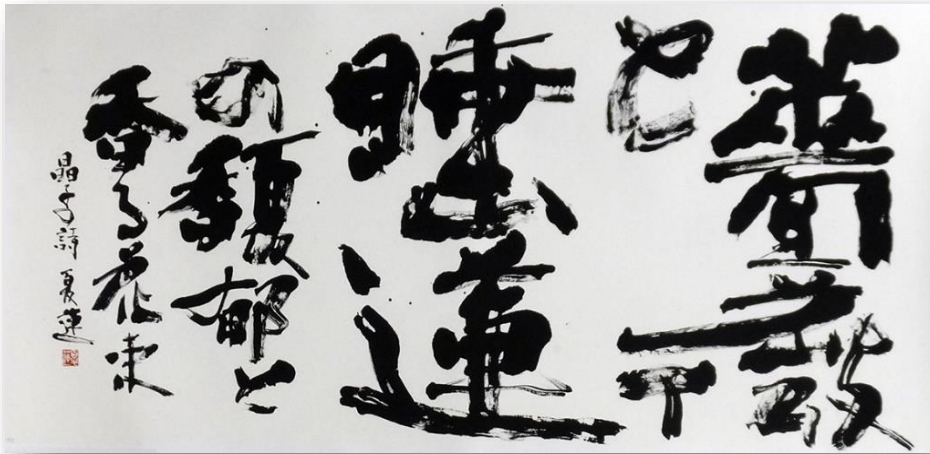 薔薇
と
睡蓮
の馥郁と
香る花束
晶子詩 夏蓮